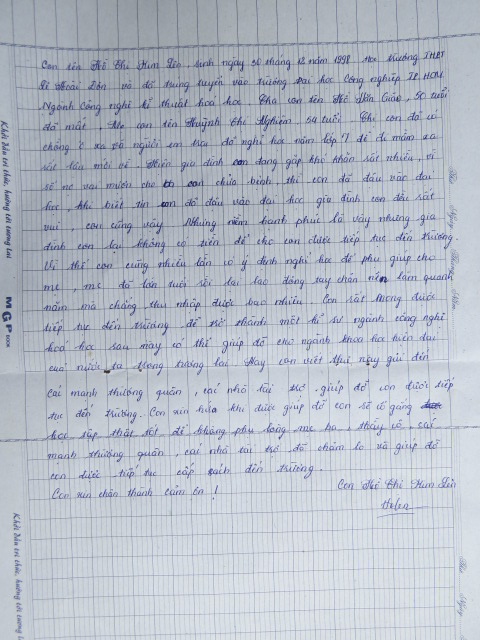 Con tên Hồ Thị Kim Lên, sinh ngày 30 tháng 12 năm 1998. Học trường THPT
Lê Hoài Đôn và đã trúng tuyển vào trường Đại học Công nghiệp TP.HCM
Ngành Công nghệ kĩ thuật hoá học. Cha con tên Hồ Văn Giáo, 50 tuổi
đã mất. Mẹ con tên Huỳnh Thị Nghiêm, 54 tuổi. Chị con đã có
chồng ở xa và người em trai đã nghỉ học năm lớp 7 để đi mần xa
rất lâu mới về. Hiện gia đình con đang gặp khó khăn rất nhiều, vì
số nợ vai mượn cho cha con chữa bệnh, thì con đã đậu vào đại
học, khi biết tin con đã đậu vào đại học gia đình con đều rất
vui, con cũng vậy. Nhưng niềm hạnh phúc là vậy nhưng gia
đình con lại không có tiền để cho con được tiếp tục đến trường.
Vì thế con cũng nhiều lần có ý định nghỉ học để phụ giúp cho
mẹ, mẹ đã lớn tuổi rồi lại lao động tay chân nên làm quanh
năm mà chẳng thu nhập được bao nhiêu. Con rất mong được
tiếp tục đến trường để trở thành một kĩ sư ngành công nghệ
hoá học sau này có thể giúp đỡ cho ngành khoa học hiện đại
của nước ta trong tương lai. Nay con viết thư này gửi đến
các mạnh thường quân, các nhà tài trợ giúp đỡ con được tiếp
tục đến trường. Con xin hứa khi được giúp đỡ con sẽ cố gắng
học tập thật tốt để không phụ lòng mẹ cha, thầy cô, các
mạnh thường quân, các nhà tài trợ đã chăm lo và giúp đỡ
con được tiếp tục cắp sách đến trường.
Con xin chân thành cảm ơn!
Con Hồ Thị Kim Lên
Helen
Khởi đầu tri thức, hướng tới tương lai
MGP BOOK
Khởi đầu tri thức, hướng tới tương lai